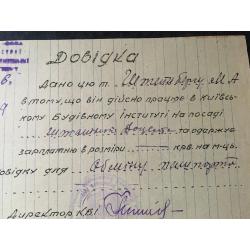 Довідка
Дано цю т. М. А
в тому, що він дійсно працює в Київсь-
кому Будівному Інституті на посаді
Доцент та одержує
зарплатню в розміри крв. на м-ць.
овідку для Обміну пашпорта
Директор К.В.І.